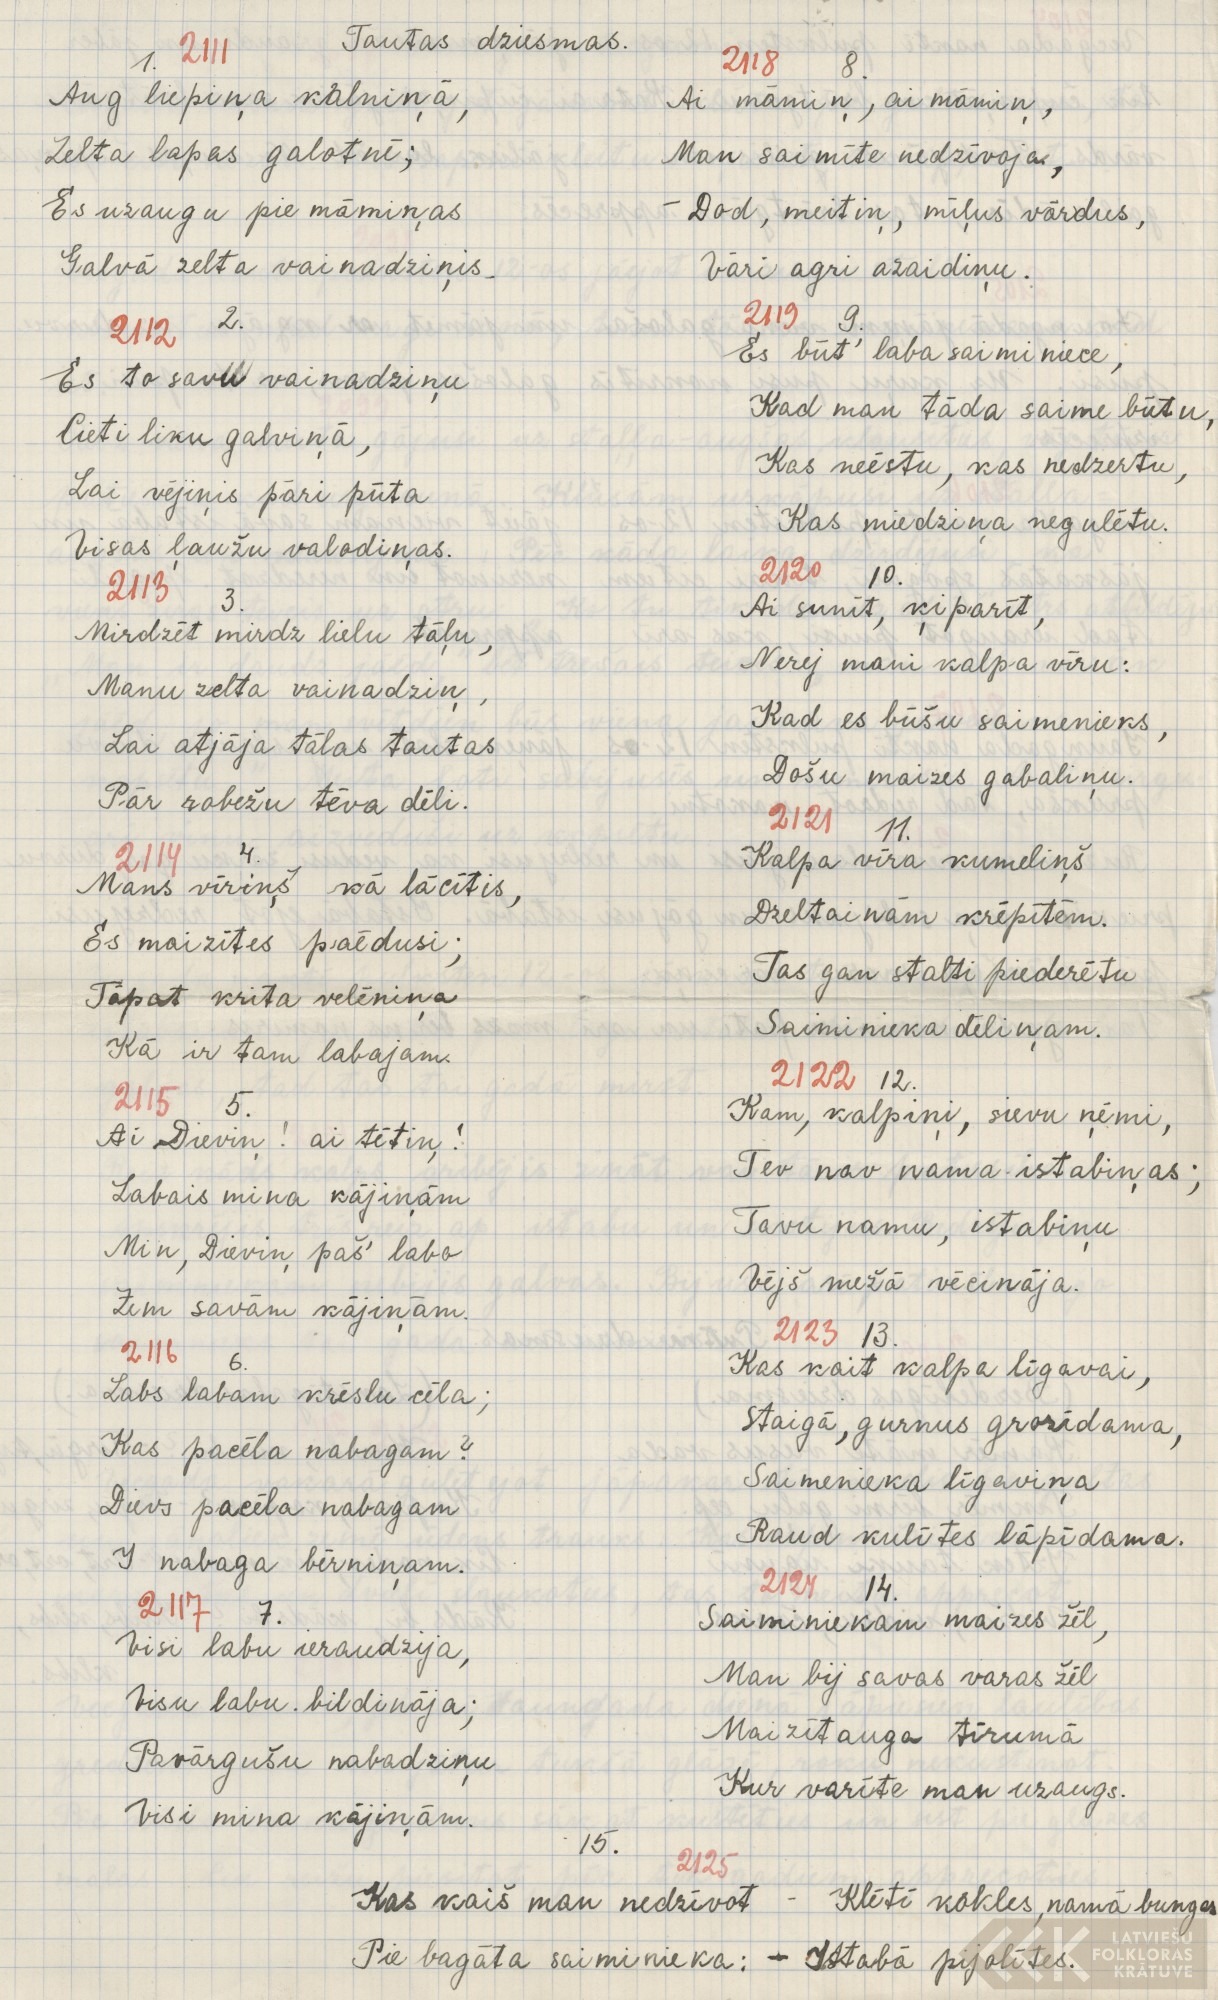 Tautas dziesmas.
1. 2111
Aug liepiņa kalniņā,
Zelta lapas galotnē;
Es uzaugu pie māmiņas
Galvā zelta vainadziņis.
2112 2.
Es to savu vainadziņu
Cieti liku galviņā,
Lai vējiņis pāri pūta
Visas ļaužu valodiņas.
2113 3.
Mirdzēt mirdz lielu tāļu,
Manu zelta vainadziņ,
Lai atjāja tālas tautas
Pār robežu tēva dēli.
2114 4.
Mans vīriņš kā lācītis,
Es maizītes paēdusi;
Tāpat krita velēniņa
Kā ir tam labajam.
2115 5.
Ai Dieviņ! ai tētiņ!
Labais mina kājiņām
Min, Dieviņ, paš' labo
Zem savām kājiņām.
2116 6.
Labs labam krēslu cēla;
Kas pacēla nabagam?
Dievs pacēla nabagam
I nabaga bērniņam.
2117 7.
Visi labu ieraudzija,
Visu labu bildināja;
Pavārgušu nabadziņu
Visi mina kājiņām.
2118 8.
Ai māmiņ, ai māmiņ,
Man saimīte nedzīvoja,
- Dod, meitiņ, mīļus vārdus,
Vāri agri azaidiņu.
2119 9.
Es būt' laba saiminiece,
Kad man tāda saime būtu,
Kas neēstu, kas nedzertu,
Kas miedziņa negulētu.
2120 10.
Ai sunīt, ķiparīt,
Nerej mani kalpa vīru:
Kad es būšu saimenieks,
Došu maizes gabaliņu.
2121 11.
Kalpa vīra kumeliņš
Dzeltainām krēpītēm.
Tas gan stalti piederētu
Saiminieka dēliņam.
2122 12.
Kam, kalpiņi, sievu ņēmi,
Tev nav nama istabiņas;
Tavu namu, istabiņu
Vējš mežā vēcināja.
2123 13.
Kas kait kalpa līgavai,
Staigā, gurnus grozīdama,
Saimenieka līgaviņa
Raud kulītes lāpīdama.
2124 14.
Saiminiekam maizes žēl,
Man bij savas varas žēl
Maizīt auga tīrumā
Kur varīte man uzaugs.
15.
2125
Kas kaiš man nedzīvot - Klētī kokles, namā bungas
Pie bagāta saiminieka: - Istabā pijolītes.
LATVIEŠU
FOLKLORAS
KRĀTUVE